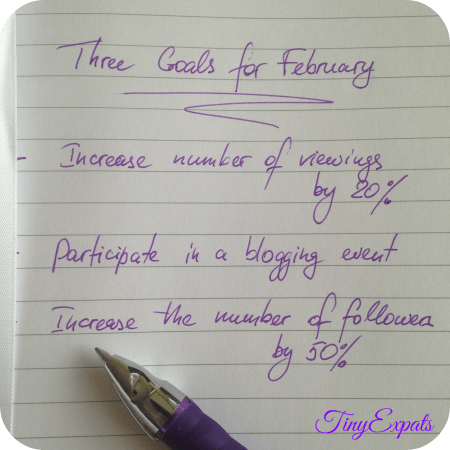 Three Goals for February
- Increase number of viewings
by 20%
- Participate in a blogging event
Increase the number of followers
by 50%
TinyExpats